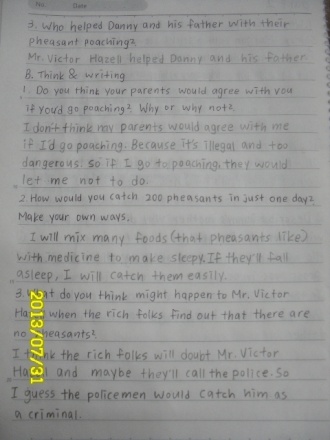 No.    Date
3. Who helped Danny and his father with their
pheasant poaching?
Mr. Victor Hazell helped Danny and his father
B. Think & writing
1. Do you think your parents would agree with you
if you'd go poaching? Why or why not?
I don't think my parents would agree with me
if I'd go poaching. Because it's illegal and too
dangerous. So if I go to poaching, they would
let me not to do.
2. How would you catch 200 pheasants in just one day?
Make your own ways.
I will mix many foods (that pheasants like)
with medicine to make sleepy. If they'll fall
asleep, I will catch them easily.
3. What do you think might happen to Mr. Victor
Hazell when the rich folks find out that there are
no pheasants?
I think the rich folks will doubt Mr. Victor
Hazell and maybe they'll call the police. So
I guess the policemen would catch him as
a criminal.
2013/07/31